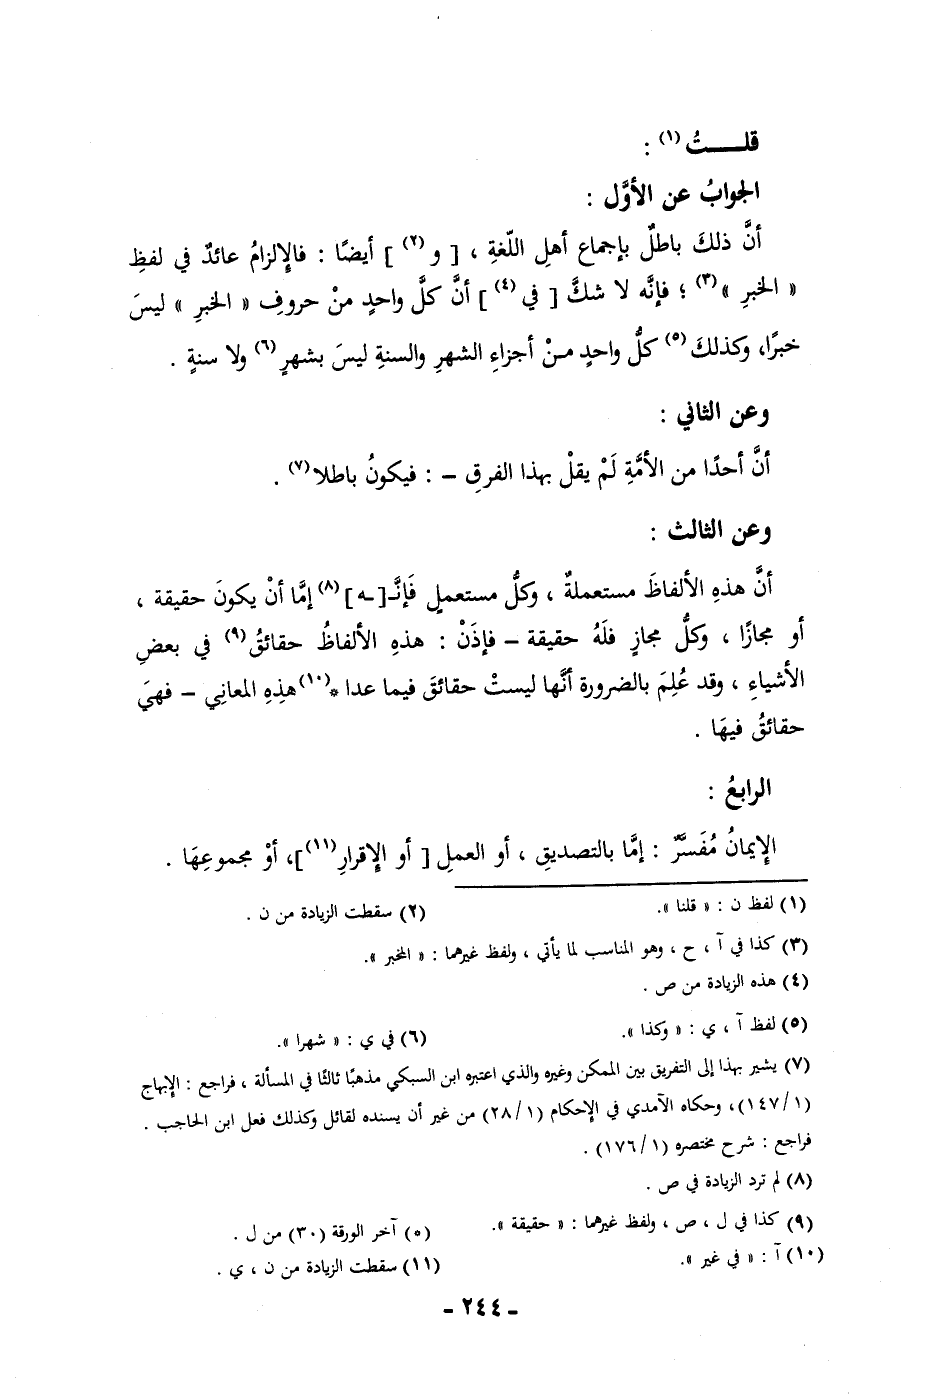 قلـــتُ (١) :
الجوابُ عن الأوَّل :
أنَّ ذلكَ باطلٌ بإجماع أهلِ اللّغةِ ، [ و (٢) ] أيضًا : فالإلزامُ عائدٌ في لفظِ
« الخبرِ » (٣) ؛ فإنَّه لا شكَّ [ في (٤) ] أنَّ كلَّ واحدٍ منْ حروفِ « الخبرِ » ليسَ
خبرًا، وكذلكَ (٥) كلُّ واحدٍ مـنْ أجزاءِ الشهرِ والسنةِ ليسَ بشهرٍ (٦) ولا سنةٍ .
وعن الثاني :
أنَّ أحدًا من الأمَّةِ لَمْ يقلْ بهذا الفرقِ – : فيكونُ باطلا (٧) .
وعن الثالث :
أنَّ هذهِ الألفاظَ مستعملةٌ ، وكلُّ مستعملٍ فَإنَّـ[ـه] (٨) إمَّا أنْ يكونَ حقيقة ،
أو مجازًا ، وكلُّ مجازٍ فلَهُ حقيقة – فإذَنْ : هذهِ الألفاظُ حقائقُ (٩) في بعضِ
الأشياءِ ، وقد عُلِمَ بالضرورة أنَّها ليستْ حقائقَ فيما عدا * (١٠) هذِهِ المعانِي – فهيَ
حقائقُ فيهَا .
الرابعُ :
الإيمانُ مُفَسَّرٌ : إمَّا بالتصديقِ ، أو العملِ [ أو الإقرارِ (١١) ]، أوْ مجموعِهَا .
(١) لفظ ن : « قلنا ». (٢) سقطت الزيادة من ن .
(٣) كذا في آ ، ح ، وهو المناسب لما يأتي ، ولفظ غيرهما : « المخبر ».
(٤) هذه الزيادة من ص .
(٥) لفظ آ ، ي : « وكذا ». (٦) في ي : « شهرا ».
(٧) يشير بهذا إلى التفريق بين الممكن وغيره والذي اعتبره ابن السبكي مذهبًا ثالثًا في المسألة ، فراجع : الإبهاج
(١/١٤٧)، وحكاه الآمدي في الإحكام (١/٢٨) من غير أن يسنده لقائل وكذلك فعل ابن الحاجب .
فراجع : شرح مختصره (١/١٧٦) .
(٨) لم ترد الزيادة في ص .
(٩) كذا في ل ، ص ، ولفظ غيرهما : « حقيقة ». (*) آخر الورقة (٣٠) من ل .
(١٠) آ : « في غير ». (١١) سقطت الزيادة من ن ، ي .
- ٢٤٤ -